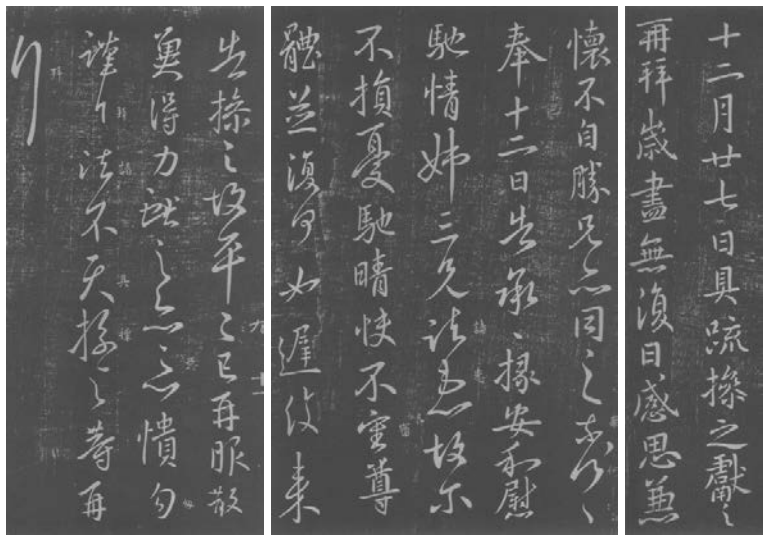 十二月廿七日具疏操之獻之
再拜歲盡無復日感思兼
懷不自勝兄亦同之奈何〻
奉十二日告承〻掾安和慰
馳情姊三兄諸患故尔
不損憂馳晴快不審尊
體並復何如遲復來
告操之故平〻已再服散
冀得力獻之亦惡憒勿
謹白諸不具操之等再
拜